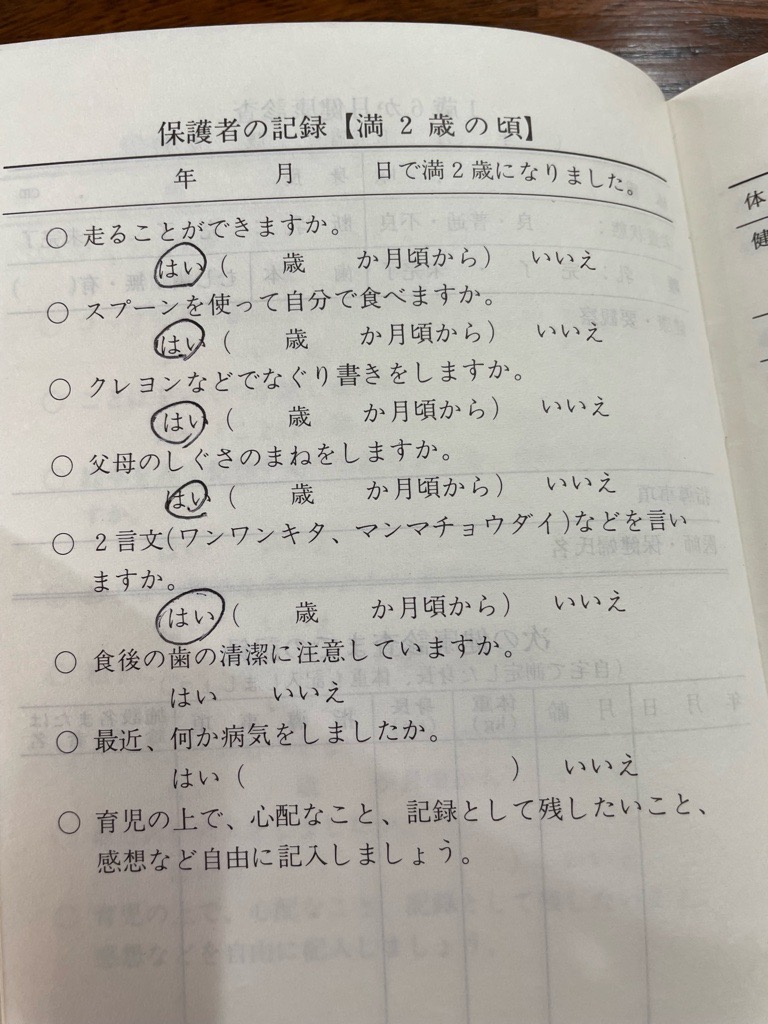 保護者の記録【満２歳の頃】
年　月　日で満２歳になりました。
○ 走ることができますか。
はい（　歳　か月頃から）　いいえ
○ スプーンを使って自分で食べますか。
はい（　歳　か月頃から）　いいえ
○ クレヨンなどでなぐり書きをしますか。
はい（　歳　か月頃から）　いいえ
○ 父母のしぐさのまねをしますか。
はい（　歳　か月頃から）　いいえ
○ ２言文(ワンワンキタ、マンマチョウダイ)などを言い
ますか。
はい（　歳　か月頃から）　いいえ
○ 食後の歯の清潔に注意していますか。
はい　いいえ
○ 最近、何か病気をしましたか。
はい（　）　いいえ
○ 育児の上で、心配なこと、記録として残したいこと、
感想など自由に記入しましょう。
体
健